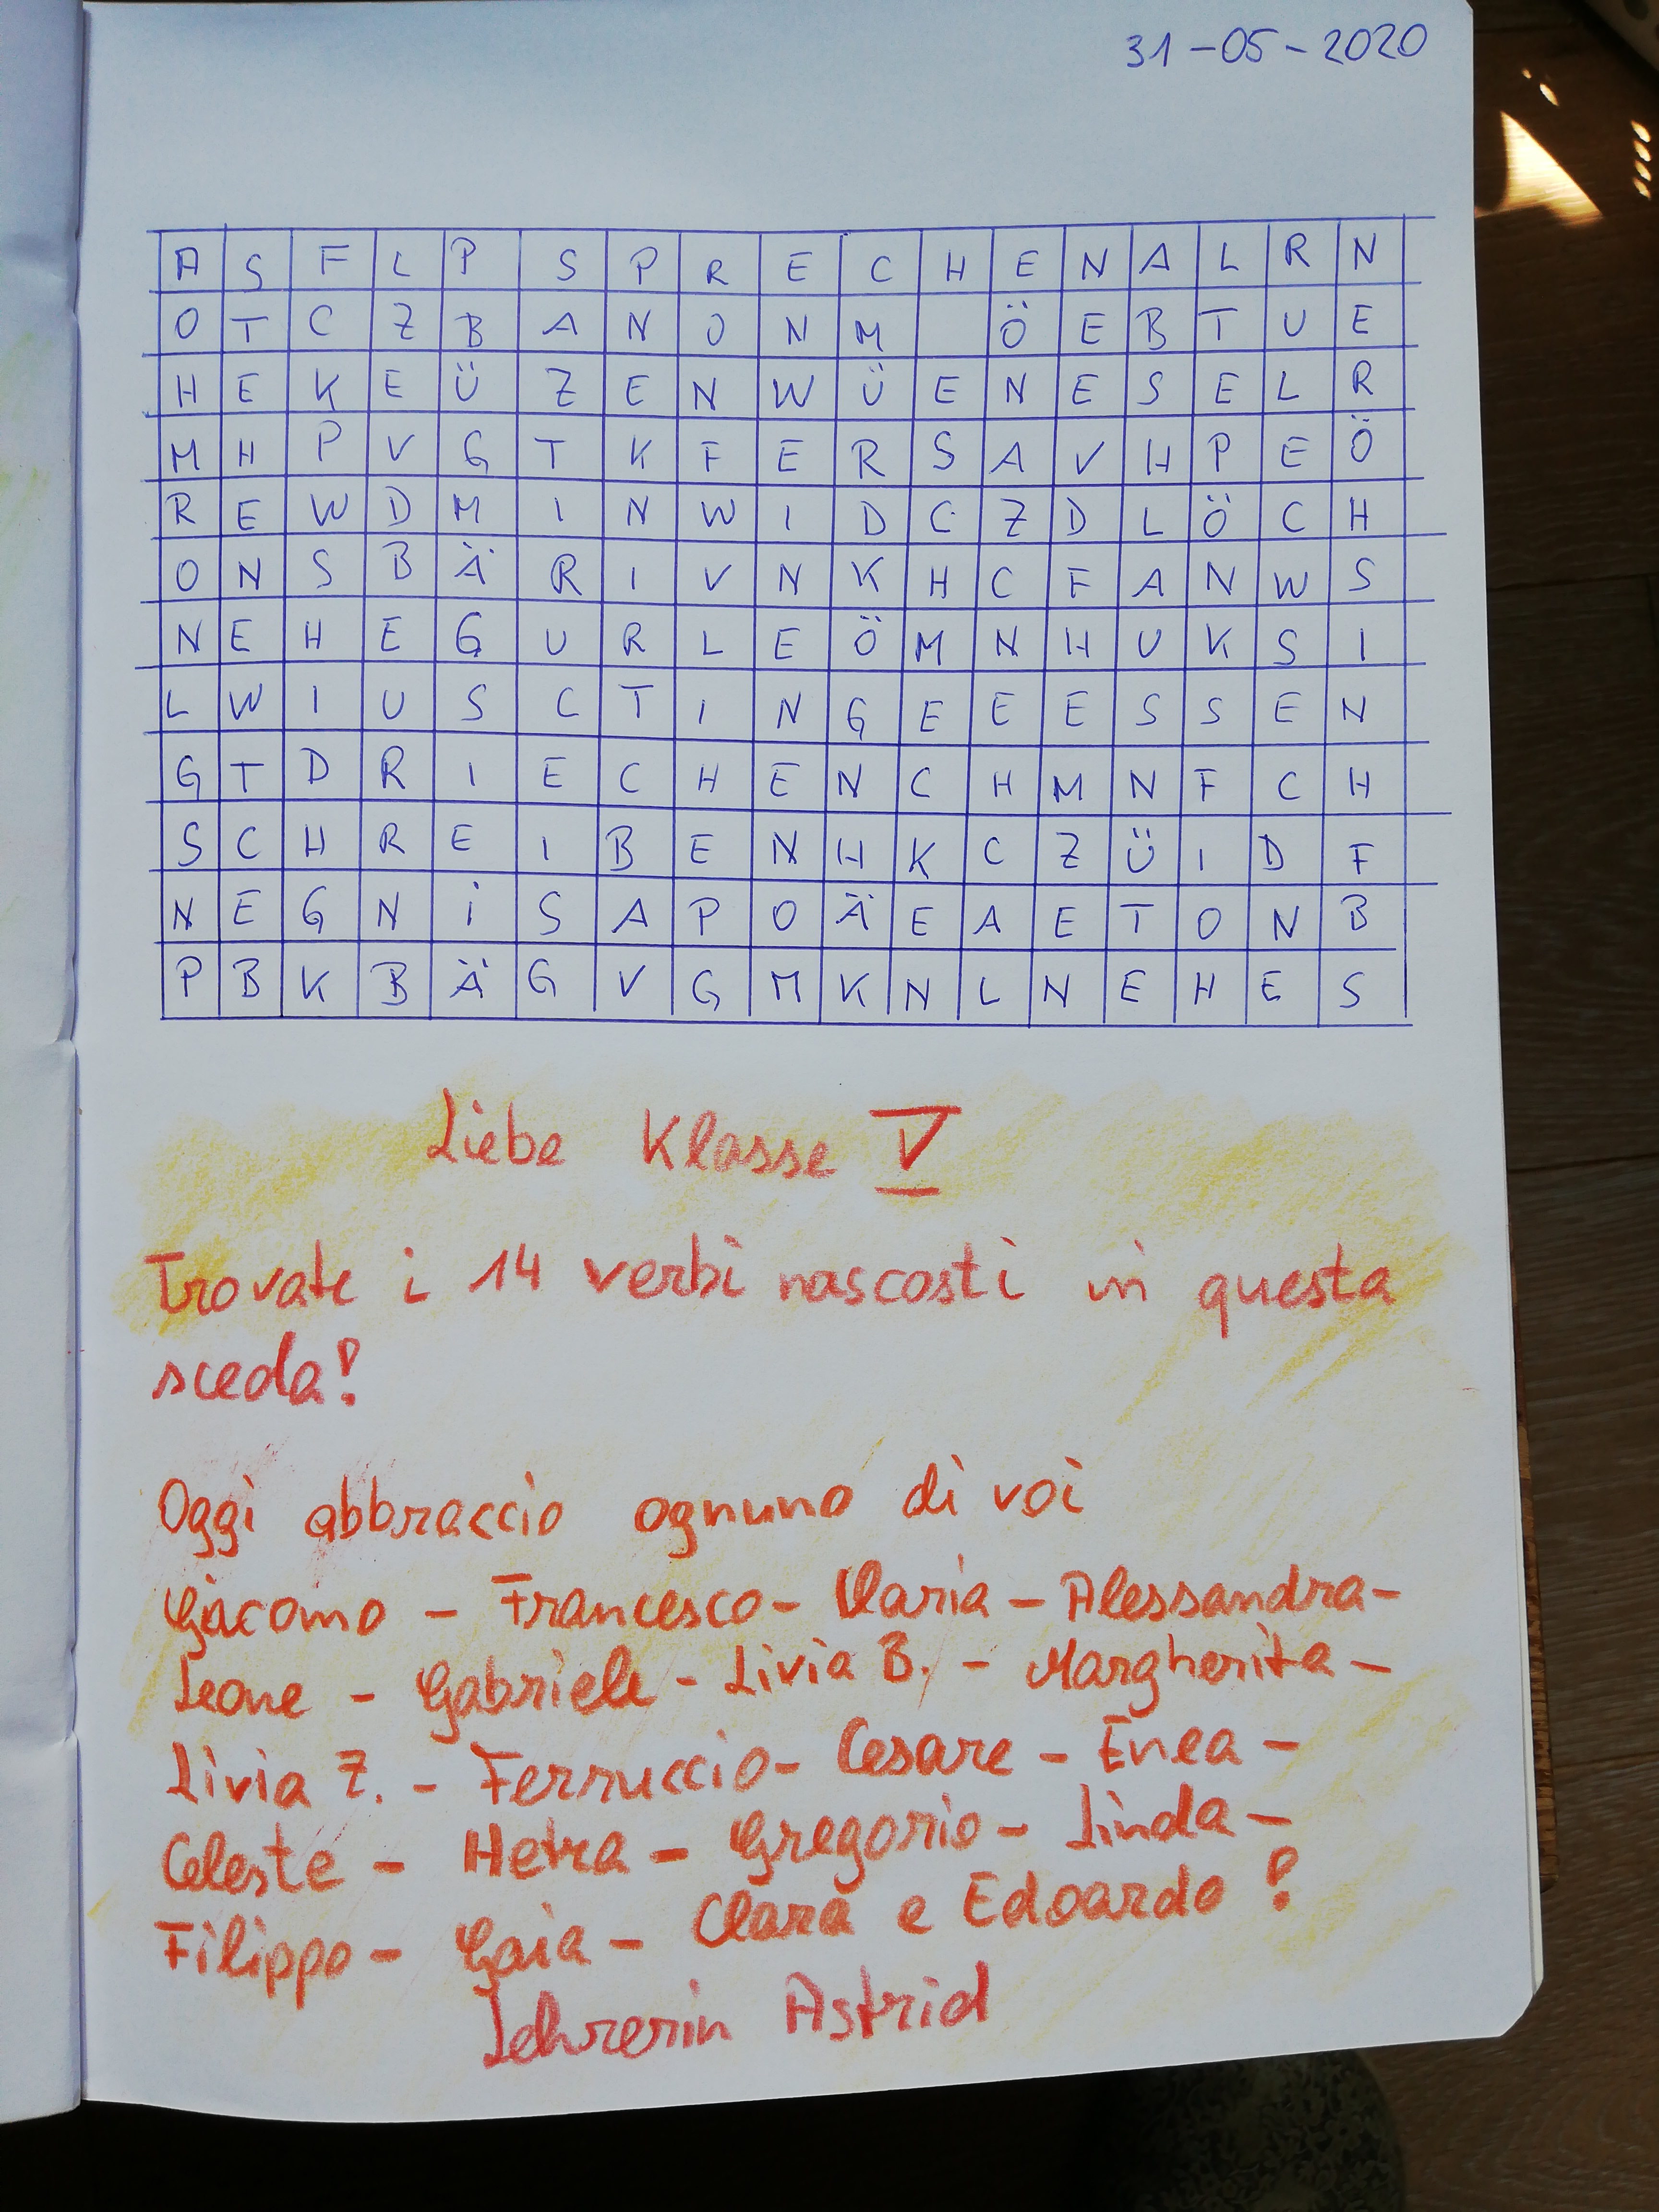 31-05-2020
A S F L P S P R E C H E N A L R N
O T C Z B A N O N M Ö E B T U E
H E K E Ü Z E N W Ü E N E S E L R
M H P V G T K F E R S A V H P E Ö
R E W D M I N W I D C Z D L Ö C H
O N S B Ä R I V N K H C F A N W S
N E H E G U R L E Ö M N H U K S I
L W I U S C T I N G E E E S S E N
G T D R I E C H E N C H M N F C H
S C H R E I B E N H K C Z Ü I D F
N E G N i S A P O Ä E A E T O N B
P B K B Ä G V G M K N L N E H E S
Liebe Klasse V
Trovate i 14 verbi nascosti in questa
sceda!
Oggi abbraccio ognuno di voi
Giacomo - Francesco - Ilaria - Alessandra -
Leone - Gabriele - Livia B. - Margherita -
Livia Z. - Ferruccio - Cesare - Enea -
Celeste - Hetra - Gregorio - Linda -
Filippo - Gaia - Clara e Edoardo!
Lehrerin Astrid